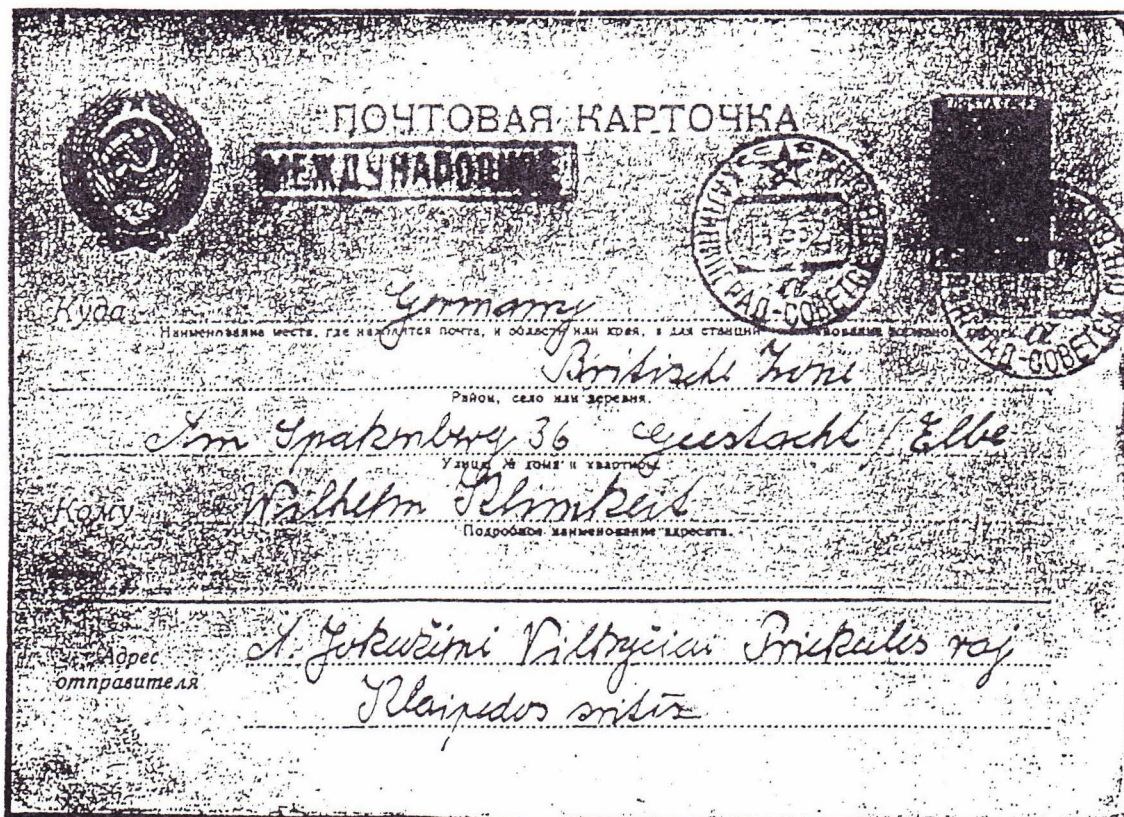 ПОЧТОВАЯ КАРТОЧКА
МЕЖДУНАРОДНОЕ
КАЛИНИНГРАД-СОВЕТСК
Куда Germany
Наименование места, где находится почта, и области или края, а для станций наименование железной дороги
Britische Zone
Район, село или деревня.
Am Spakenberg 36 Geestacht / Elbe
Улица, № дома и квартиры.
Кому Wilhelm Klimkeit
Подробное наименование адресата.
Адрес отправителя A. Jokužini Vilkyčiai Priekulės raj
Klaipedos sritis